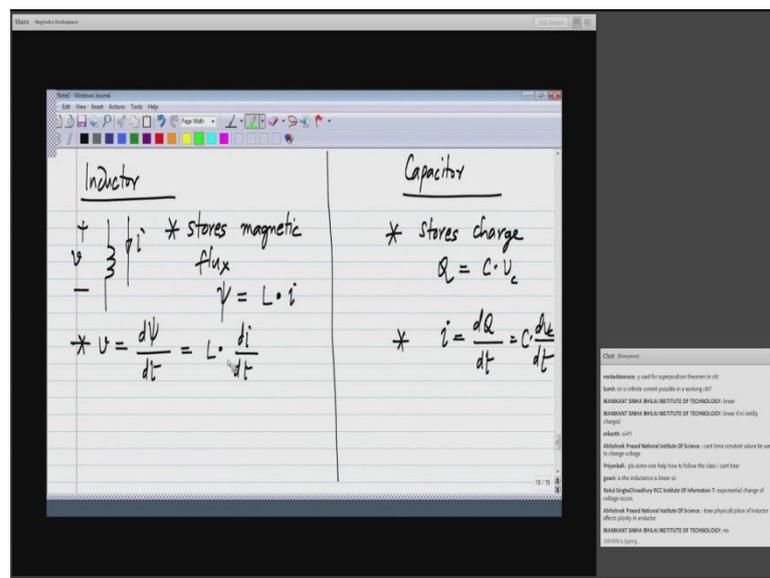 Share - Nagendra Krishnapura
Full Screen
Note2 - Windows Journal
Edit View Insert Actions Tools Help
Page Width
Inductor
+
v
-
i
* stores magnetic
flux
ψ = L · i
* v = dψ/dt = L · di/dt
Capacitor
* stores charge
Q = C · v_c
* i = dQ/dt = C · dv_c/dt
13 / 13
Chat (Everyone)
venkadesanece: y used for superposition theorem in ckt
Sumit: sir is infinite current possible in a working ckt?
MANIKANT SINHA BHILAI INSTITUTE OF TECHNOLOGY: linear
MANIKANT SINHA BHILAI INSTITUTE OF TECHNOLOGY: linear if ni initilly
charged
Abhishek Prasad National Institute Of Science : cant time constant value be use
to change voltage
PriyankaR.: pls some one help how to follow the class i cant hear
gowri: is the inductance is linear sir
Rahul SinghaChowdhury RCC Institute Of Information T: exponential change of
voltage occurs
Abhishek Prasad National Institute Of Science : does physicall place of inductor
affects planity in anductor
MANIKANT SINHA BHILAI INSTITUTE OF TECHNOLOGY: no
is typing...